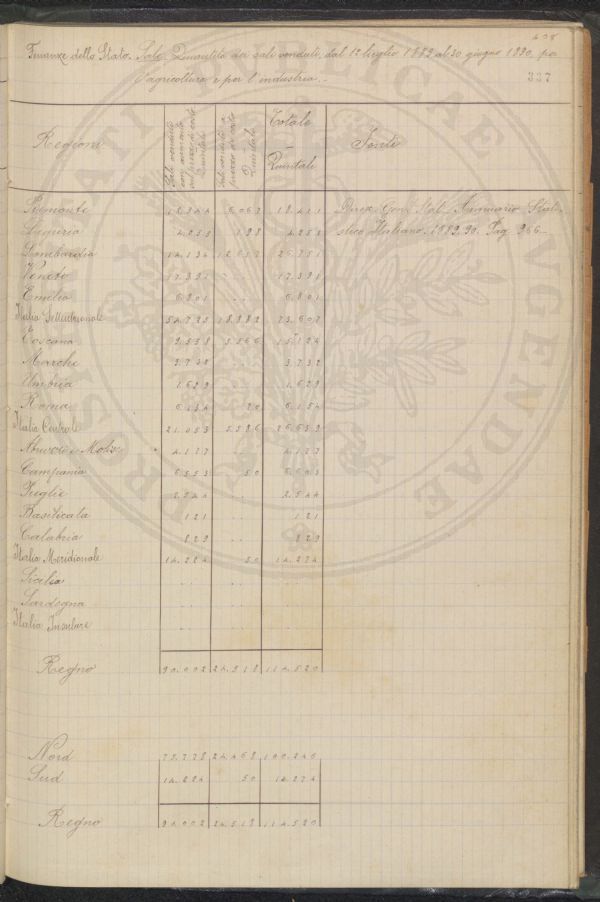 638
Finanze dello Stato. Sale. Quantità dei sali venduti, dal 1º luglio 1889 al 30 giugno 1890, per
l'agricoltura e per l'industria.
337
Regioni
Sali venduti
Sali venduti a
prezzo di costo
Quintali
Totale
—
Quintali
Fonti
Piemonte 12.344 6.067 18.411 Direz. Gen. Stat. Annuario Stati-
Liguria 4.053 198 4.251 stico Italiano. 1889.90. Pag 966
Lombardia 14.134 12.617 26.751
Veneto 17.391 .. 17.391
Emilia 6.801 .. 6.801
Italia Settentrionale 54.725 18.882 73.607
Toscana 9.558 5.566 15.124
Marche 3.732 .. 3.732
Umbria 1.629 .. 1.629
Roma 6.134 20 6.154
Italia Centrale 21.053 5.586 26.639
Abruzzi e Molise 4.177 .. 4.177
Campania 6.553 50 6.603
Puglie 2.544 .. 2.544
Basilicata 121 .. 121
Calabria 829 .. 829
Italia Meridionale 14.224 50 14.274
Sicilia .. .. ..
Sardegna .. .. ..
Italia Insulare .. .. ..
Regno 90.002 24.518 114.520
Nord 75.778 24.468 100.246
Sud 14.224 50 14.274
Regno 90.002 24.518 114.520